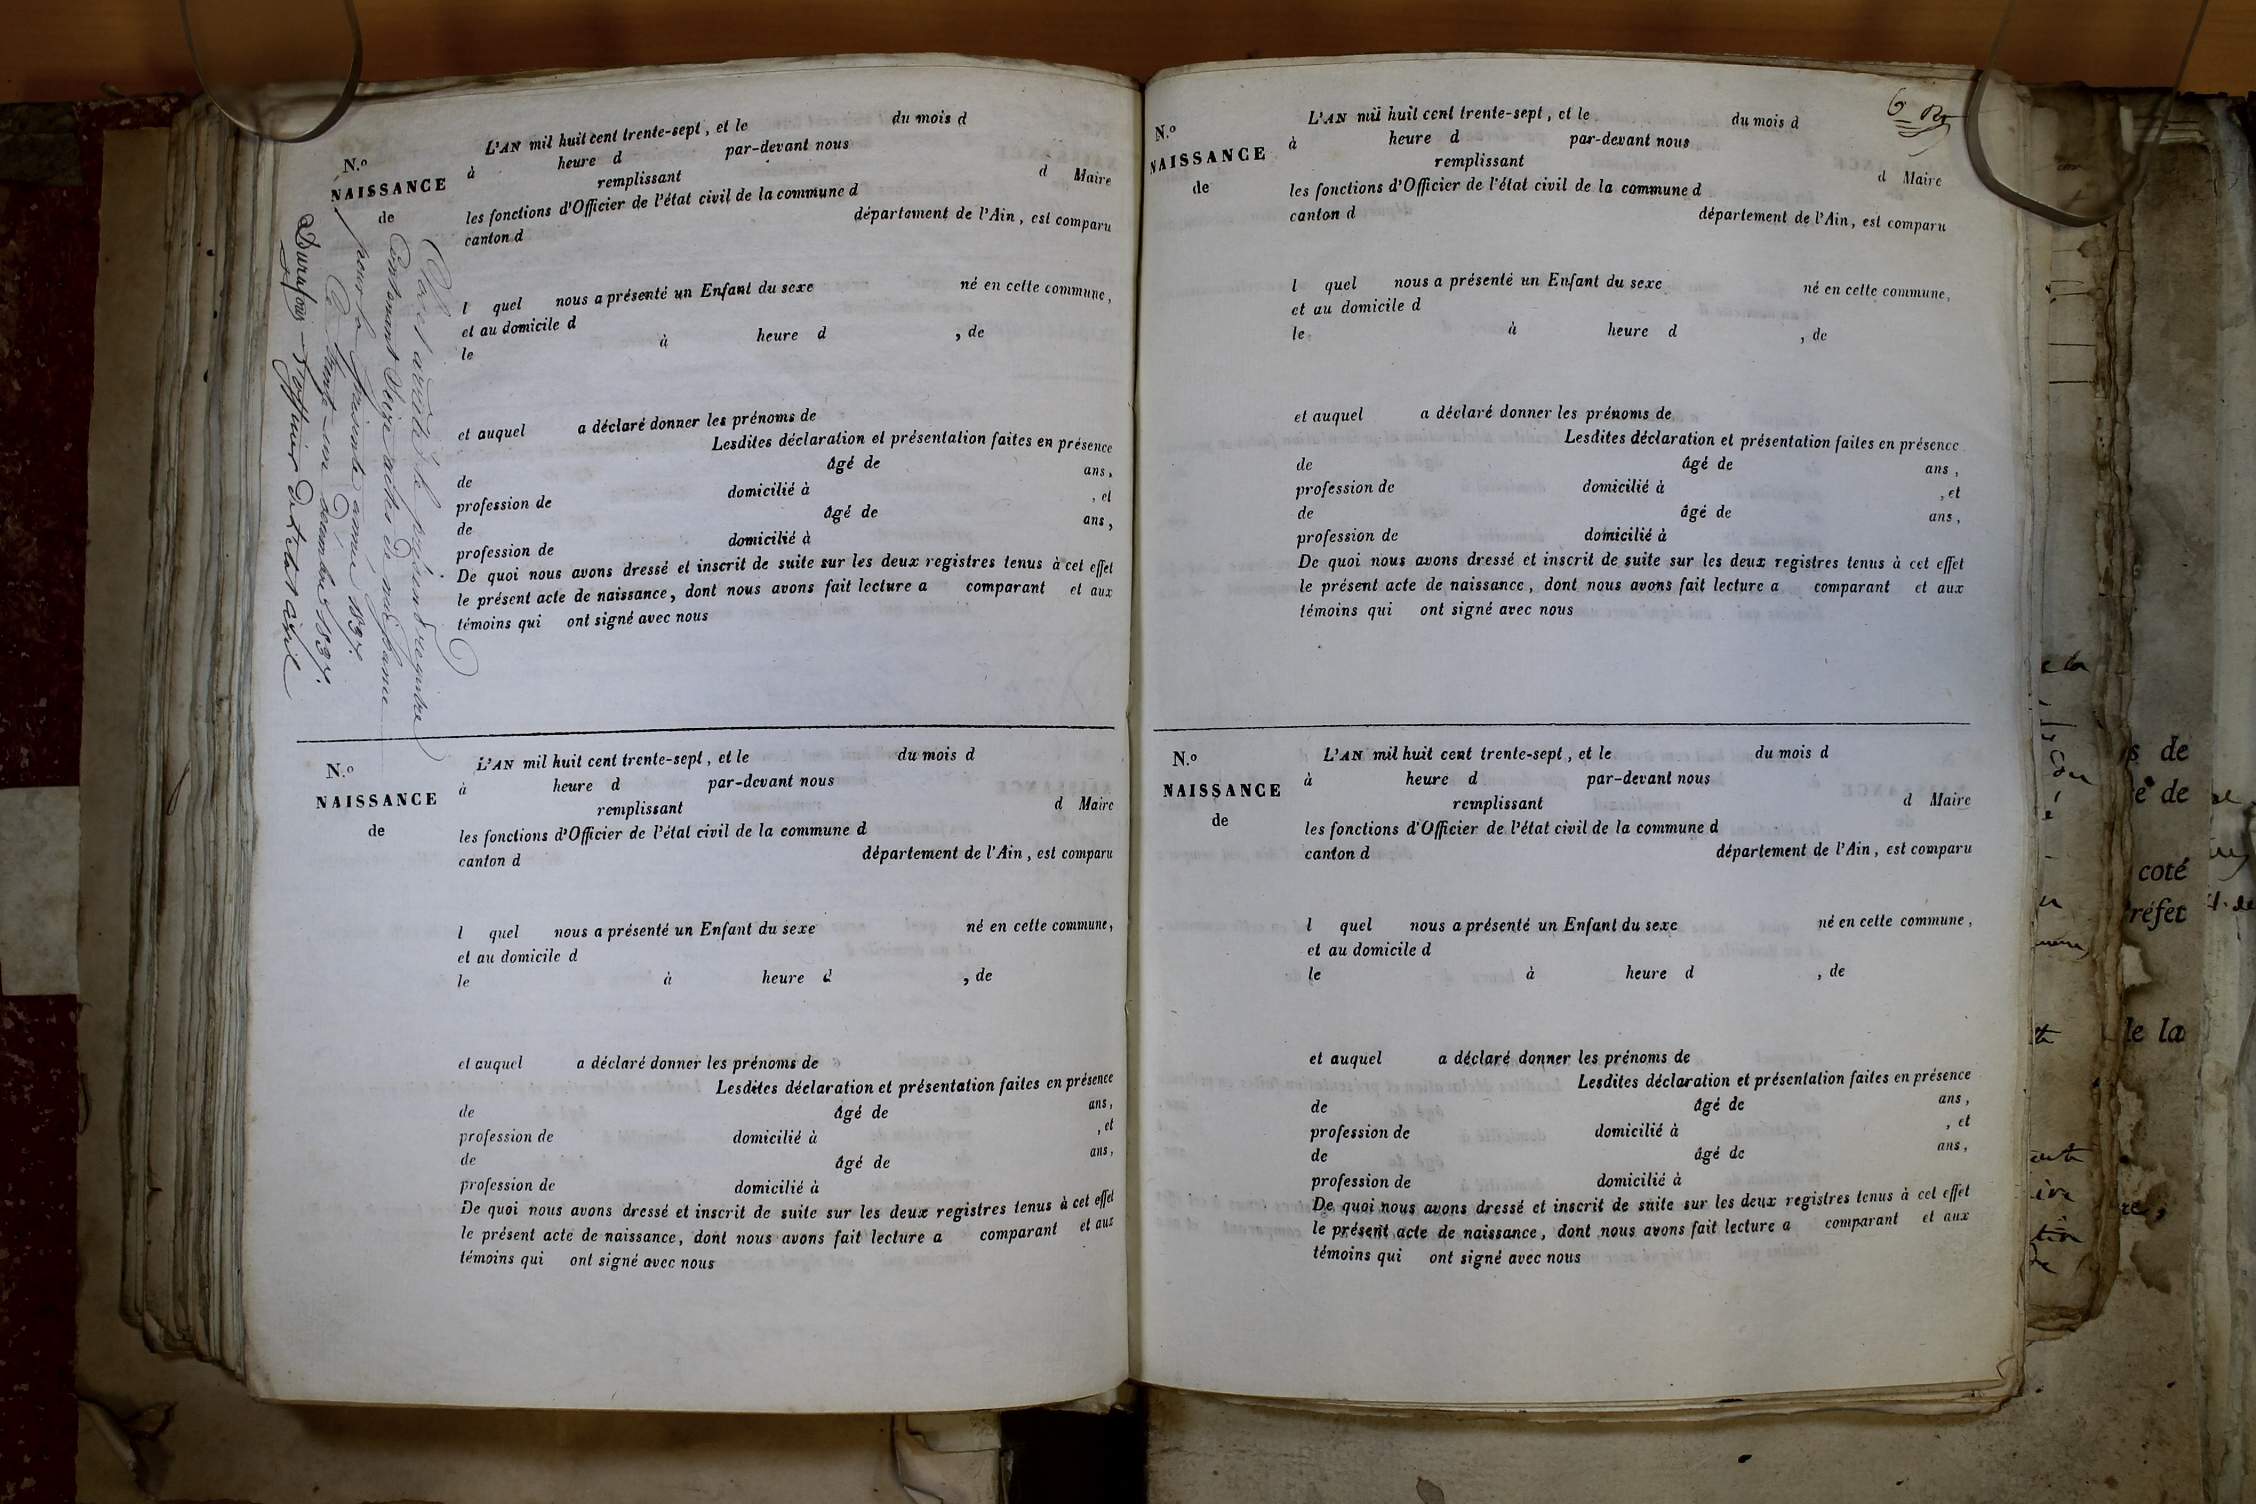 N.º
NAISSANCE
de
L'AN mil huit cent trente-sept, et le du mois d
à heure d par-devant nous
remplissant d Maire
les fonctions d'Officier de l'état civil de la commune d
canton d département de l'Ain, est comparu
l quel nous a présenté un Enfant du sexe né en cette commune,
et au domicile d
le à heure d , de
et auquel a déclaré donner les prénoms de
Lesdites déclaration et présentation faites en présence
de âgé de ans,
profession de domicilié à , et
de âgé de ans,
profession de domicilié à
De quoi nous avons dressé et inscrit de suite sur les deux registres tenus à cet effet
le présent acte de naissance, dont nous avons fait lecture a comparant et aux
témoins qui ont signé avec nous
Clos et arrêté le présent registre
Contenant Seize actes de naissance
pour la présente année 1837.
Ce trente-un décembre 1837.
l'officier de l'état civil
N.º
NAISSANCE
de
L'AN mil huit cent trente-sept, et le du mois d
à heure d par-devant nous
remplissant d Maire
les fonctions d'Officier de l'état civil de la commune d
canton d département de l'Ain, est comparu
l quel nous a présenté un Enfant du sexe né en cette commune,
et au domicile d
le à heure d , de
et auquel a déclaré donner les prénoms de
Lesdites déclaration et présentation faites en présence
de âgé de ans,
profession de domicilié à , et
de âgé de ans,
profession de domicilié à
De quoi nous avons dressé et inscrit de suite sur les deux registres tenus à cet effet
le présent acte de naissance, dont nous avons fait lecture a comparant et aux
témoins qui ont signé avec nous
N.º
NAISSANCE
de
L'AN mil huit cent trente-sept, et le du mois d
à heure d par-devant nous
remplissant d Maire
les fonctions d'Officier de l'état civil de la commune d
canton d département de l'Ain, est comparu
l quel nous a présenté un Enfant du sexe né en cette commune,
et au domicile d
le à heure d , de
et auquel a déclaré donner les prénoms de
Lesdites déclaration et présentation faites en présence
de âgé de ans,
profession de domicilié à , et
de âgé de ans,
profession de domicilié à
De quoi nous avons dressé et inscrit de suite sur les deux registres tenus à cet effet
le présent acte de naissance, dont nous avons fait lecture a comparant et aux
témoins qui ont signé avec nous
N.º
NAISSANCE
de
L'AN mil huit cent trente-sept, et le du mois d
à heure d par-devant nous
remplissant d Maire
les fonctions d'Officier de l'état civil de la commune d
canton d département de l'Ain, est comparu
l quel nous a présenté un Enfant du sexe né en cette commune,
et au domicile d
le à heure d , de
et auquel a déclaré donner les prénoms de
Lesdites déclaration et présentation faites en présence
de âgé de ans,
profession de domicilié à , et
de âgé de ans,
profession de domicilié à
De quoi nous avons dressé et inscrit de suite sur les deux registres tenus à cet effet
le présent acte de naissance, dont nous avons fait lecture a comparant et aux
témoins qui ont signé avec nous
de
de
coté
réfet
de la